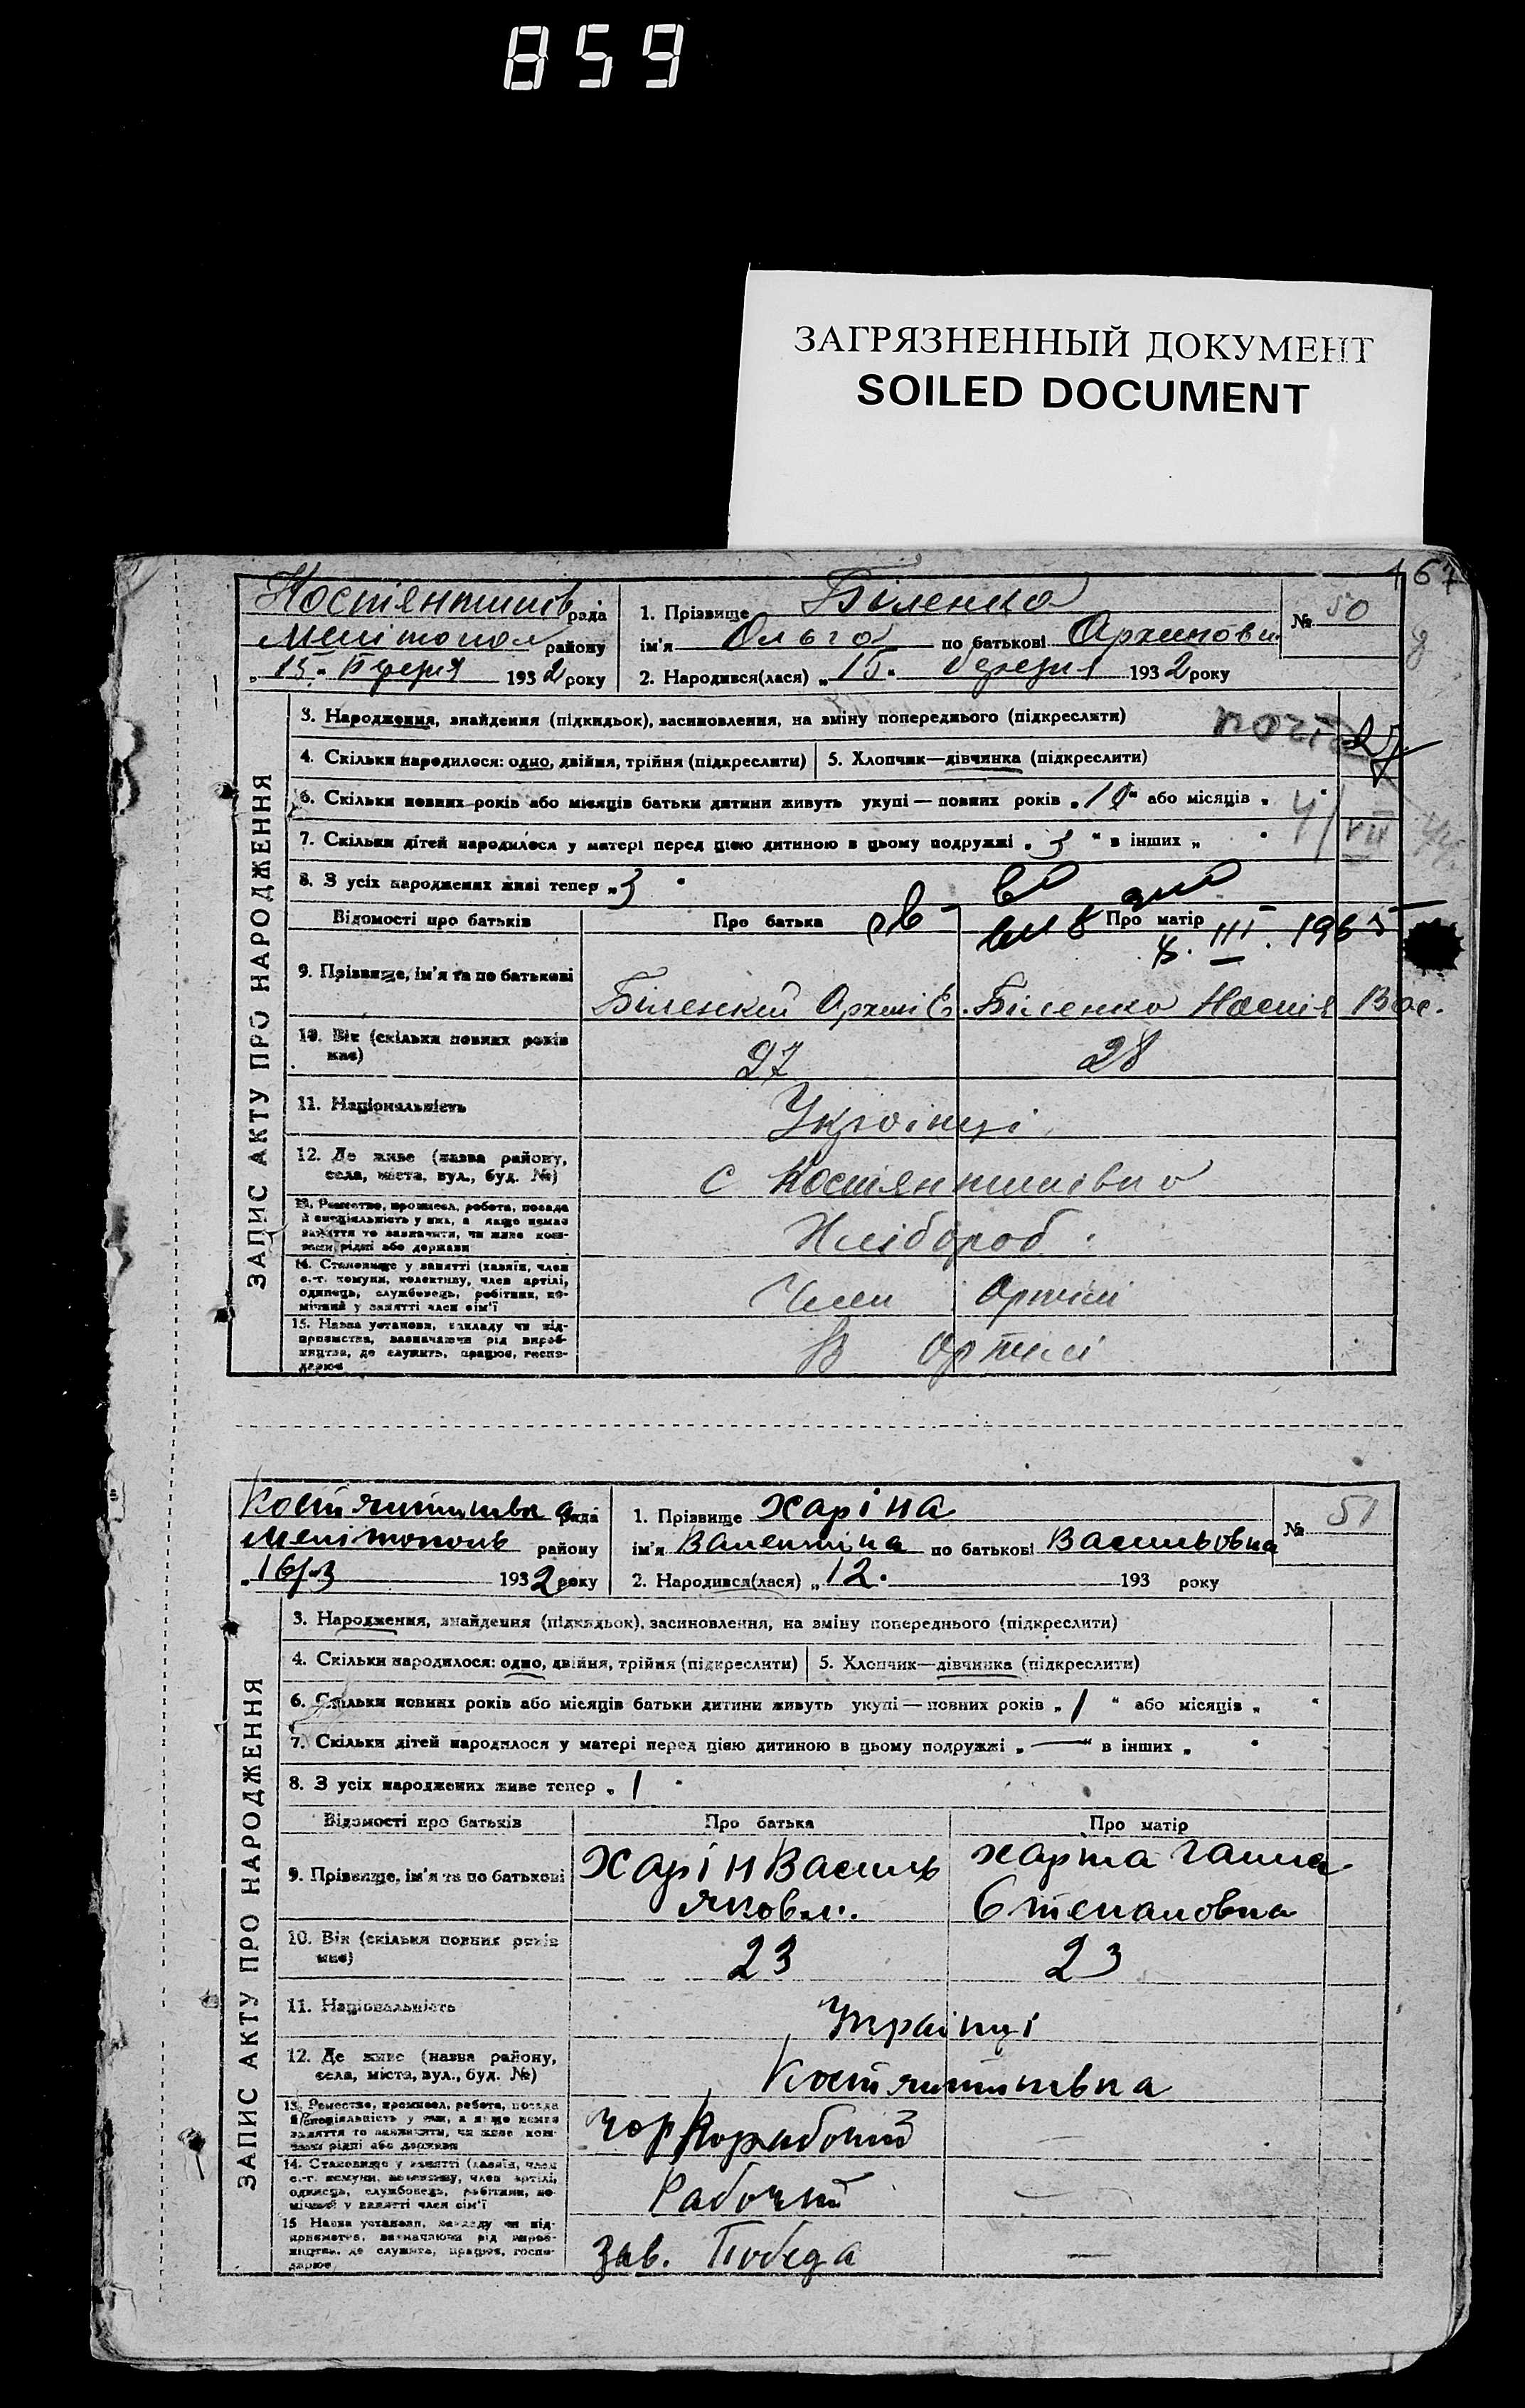 859
ЗАГРЯЗНЕННЫЙ ДОКУМЕНТ
SOILED DOCUMENT
167
Костянтинів рада
Мелітопол району
„15" березня 1932 року
1. Прізвище Біленко № 50
ім'я Ольга по батькові Архиповн
2. Народився(лася) „15" березня 1932 року
ЗАПИС АКТУ ПРО НАРОДЖЕННЯ
3. Народження, знайдення (підкидьок), засиновлення, на зміну попереднього (підкреслити)
4. Скільки народилося: одно, двійня, трійня (підкреслити) 5. Хлопчик—дівчинка (підкреслити)
6. Скільки повних років або місяців батьки дитини живуть укупі — повних років „10" або місяців „ "
7. Скільки дітей народилося у матері перед цією дитиною в цьому подружжі „3" в інших „ "
8. З усіх народжених живі тепер „3"
Відомості про батьків Про батька Про матір
III. 1965
9. Прізвище, ім'я та по батькові Біленкий Архип Є. Біленко Настя Вас.
10. Вік (скільки повних років має) 27 28
11. Національність Українці
12. Де живе (назва району, села, міста, вул., буд. №) с Костянтинівка
13. Ремество, промисел, робота, посада й спеціяльність у них, а якщо немає заняття то зазначити, чи живе коштами рідні або держави Хлібороб
14. Становище у занятті (хазяїн, член с.-г. комуни, колективу, член артілі, одинець, службовець, робітник, помічний у занятті член сім'ї Член Артілі
15. Назва установи, закладу чи підприємства, зазначаючи рід виробництва, де служить, працює, господарює В Артілі
Костянтинівка рада
Мелітополь району
„16/3 1932 року
1. Прізвище Харіна № 51
ім'я Валентіна по батькові Васильовна
2. Народився(лася) „12" 193 року
ЗАПИС АКТУ ПРО НАРОДЖЕННЯ
3. Народження, знайдення (підкидьок), засиновлення, на зміну попереднього (підкреслити)
4. Скільки народилося: одно, двійня, трійня (підкреслити) 5. Хлопчик—дівчинка (підкреслити)
6. Скільки повних років або місяців батьки дитини живуть укупі — повних років „1" або місяців „ "
7. Скільки дітей народилося у матері перед цією дитиною в цьому подружжі „—" в інших „ "
8. З усіх народжених живе тепер „1"
Відомості про батьків Про батька Про матір
9. Прізвище, ім'я та по батькові Харін Василь Яковл. Харіна Ганна Степановна
10. Вік (скільки повних років має) 23 23
11. Національність Українці
12. Де живе (назва району, села, міста, вул., буд. №) Костянтинівка
13. Ремество, промисел, робота, посада й спеціяльність у них, а якщо немає заняття то зазначити, чи живе коштами рідні або держави Чорнорабочий —
14. Становище у занятті (хазяїн, член с.-г. комуни, колективу, член артілі, одинець, службовець, робітник, помічний у занятті член сім'ї Рабочий —
15 Назва установи, закладу чи підприємства, зазначаючи рід виробництва, де служить, працює, господарює Зав. Победа —